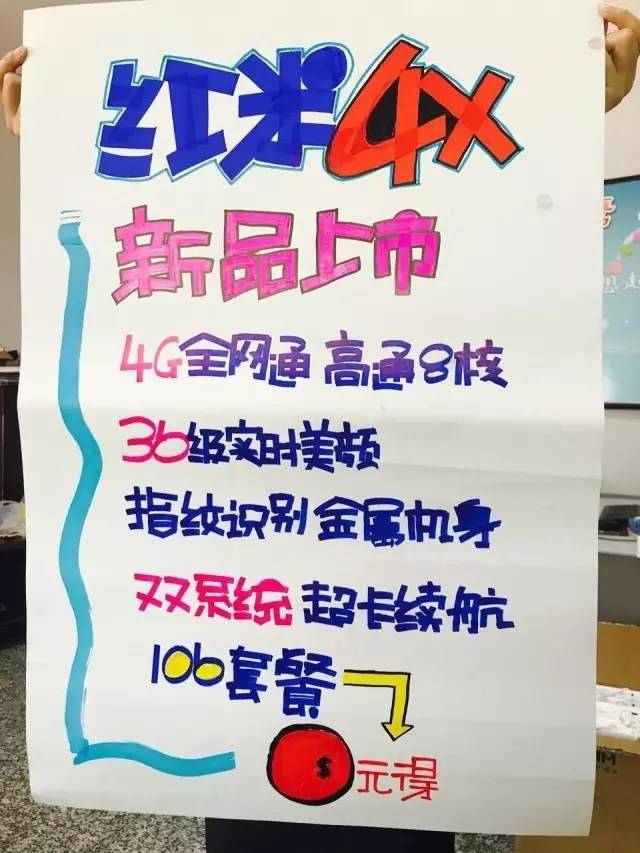 红米4X
新品上市
4G全网通 高通8核
36级实时美颜
指纹识别 金属机身
双系统 超卡续航
106套餐
0元得
想起